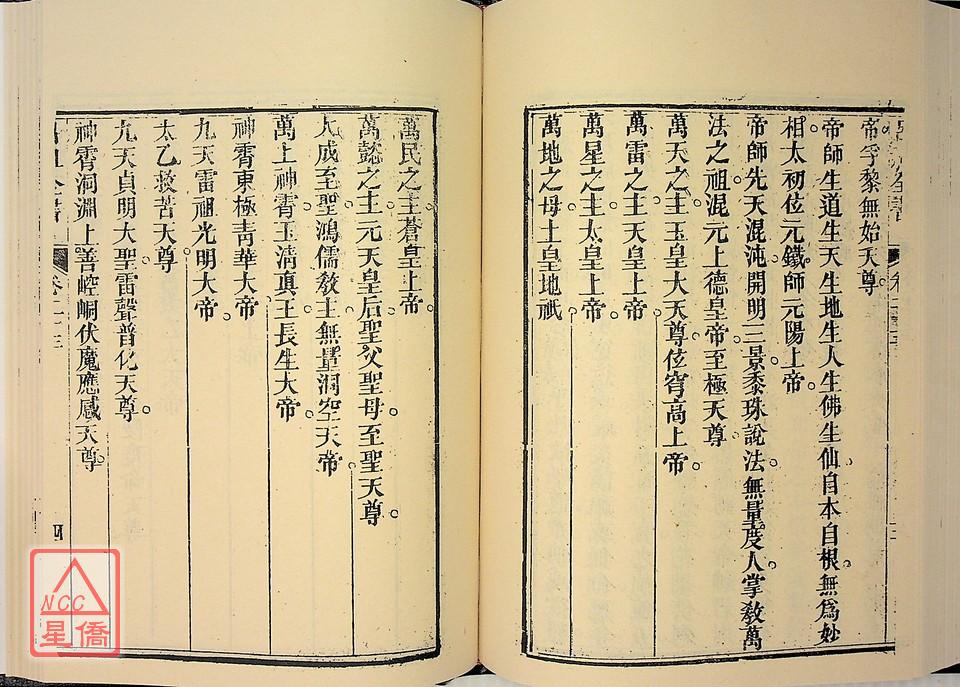 帝孚黎無始天尊。
帝師生道生天生地生人生佛生仙自本自根。無爲妙
相太初位元鐵師元陽上帝。
帝師先天混沌開明三景黍珠說法無量度人掌敎萬
法之祖。混元上德皇帝至極天尊
萬天之主。玉皇大天尊位穹高上帝。
萬雷之主。天皇上帝。
萬星之主。太皇上帝。
萬地之母。土皇地祇
萬民之主。蒼皇上帝。
萬懿之主。元天皇后聖父聖母至聖天尊。
大成至聖。鴻儒敎主。無量洞空天帝。
萬上神霄。玉清眞王長生大帝。
神霄東極青華大帝。
九天雷祖光明大帝。
太乙救苦天尊。
九天貞明大聖。雷聲普化天尊。
神霄洞淵上善崆峒伏魔應感天尊。
全書
卷二十三
四
NCC
星僑